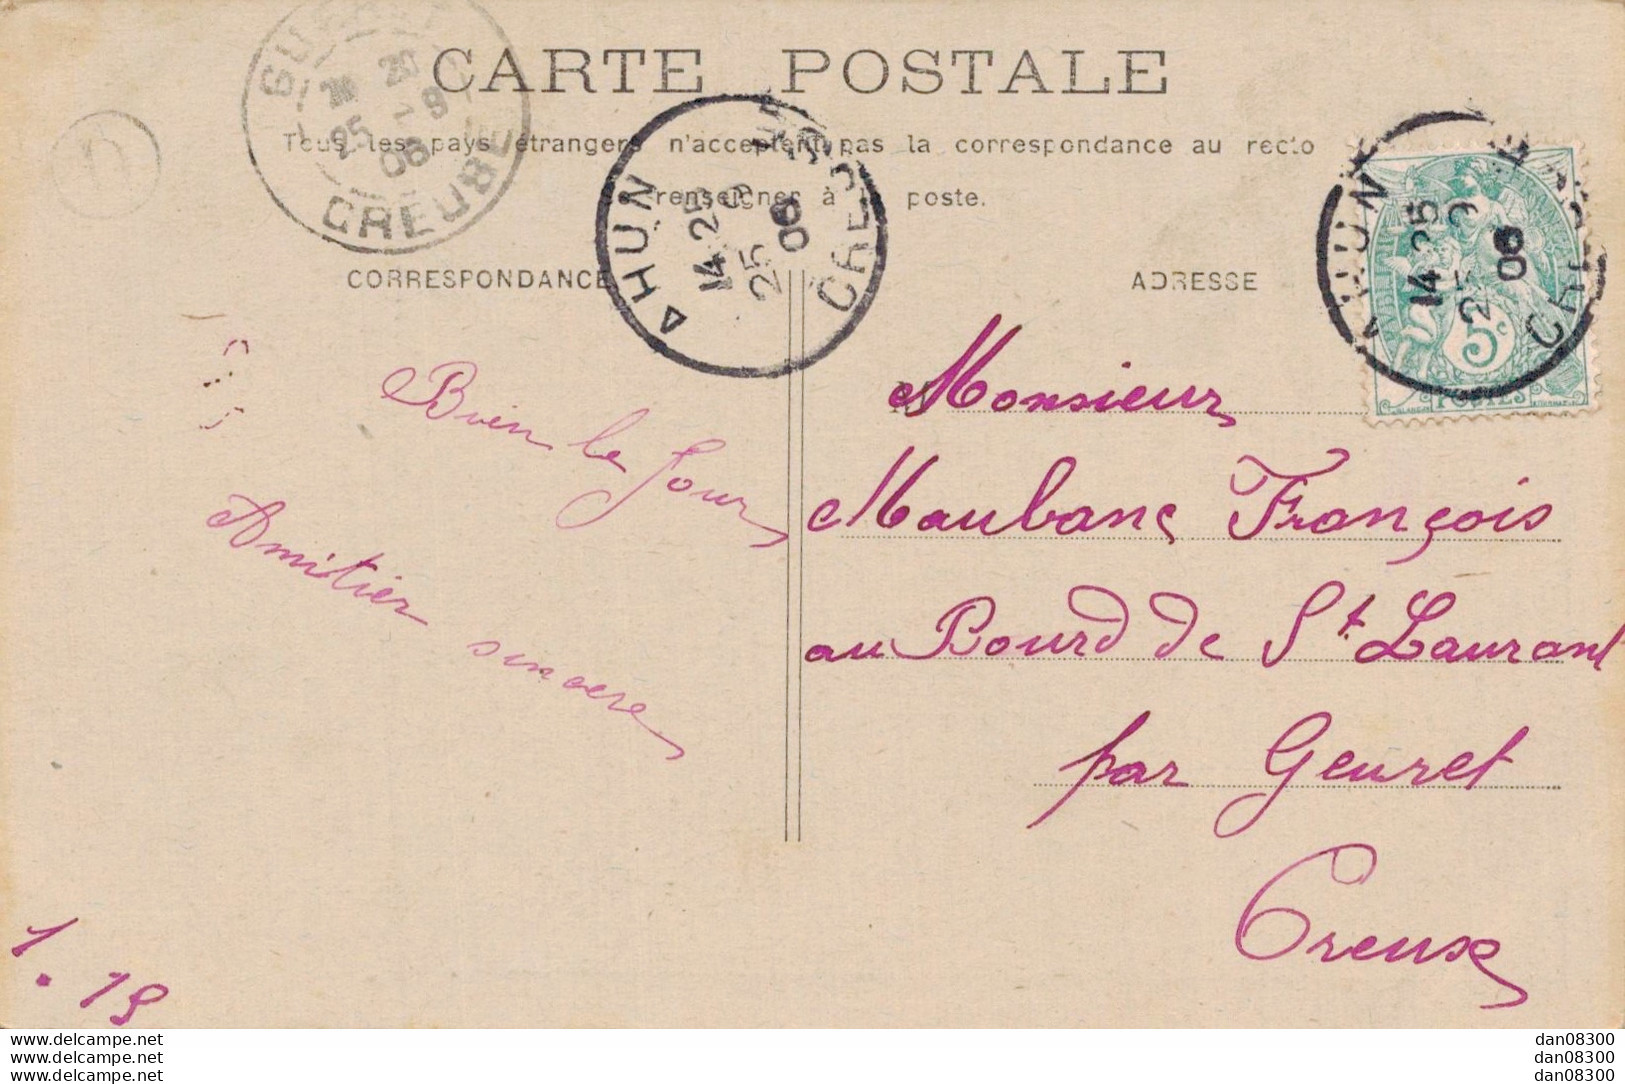 CARTE POSTALE
Tous les pays étrangers n'acceptent pas la correspondance au recto
renseigner à poste.
CORRESPONDANCE
ADRESSE
GUERET
25
25 - 9
06
CREUSE
AHUN
14 25
25 9
06
CREUSE
AHUN
14 25
25 9
06
CREUSE
5c
POSTES
Bien le Jour
Amitiér sincere
Monsieur
Maubanc François
au Bourd de St Laurant
par Geuret
Creuse
1. 19
www.delcampe.net
www.delcampe.net
www.delcampe.net
dan08300
dan08300
dan08300